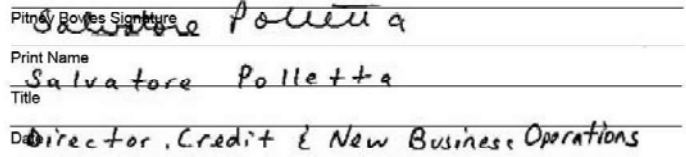 Pitney Bowes Signature
Salvatore Polletta
Print Name
Salvatore Polletta
Title
Director, Credit & New Business Operations
Date